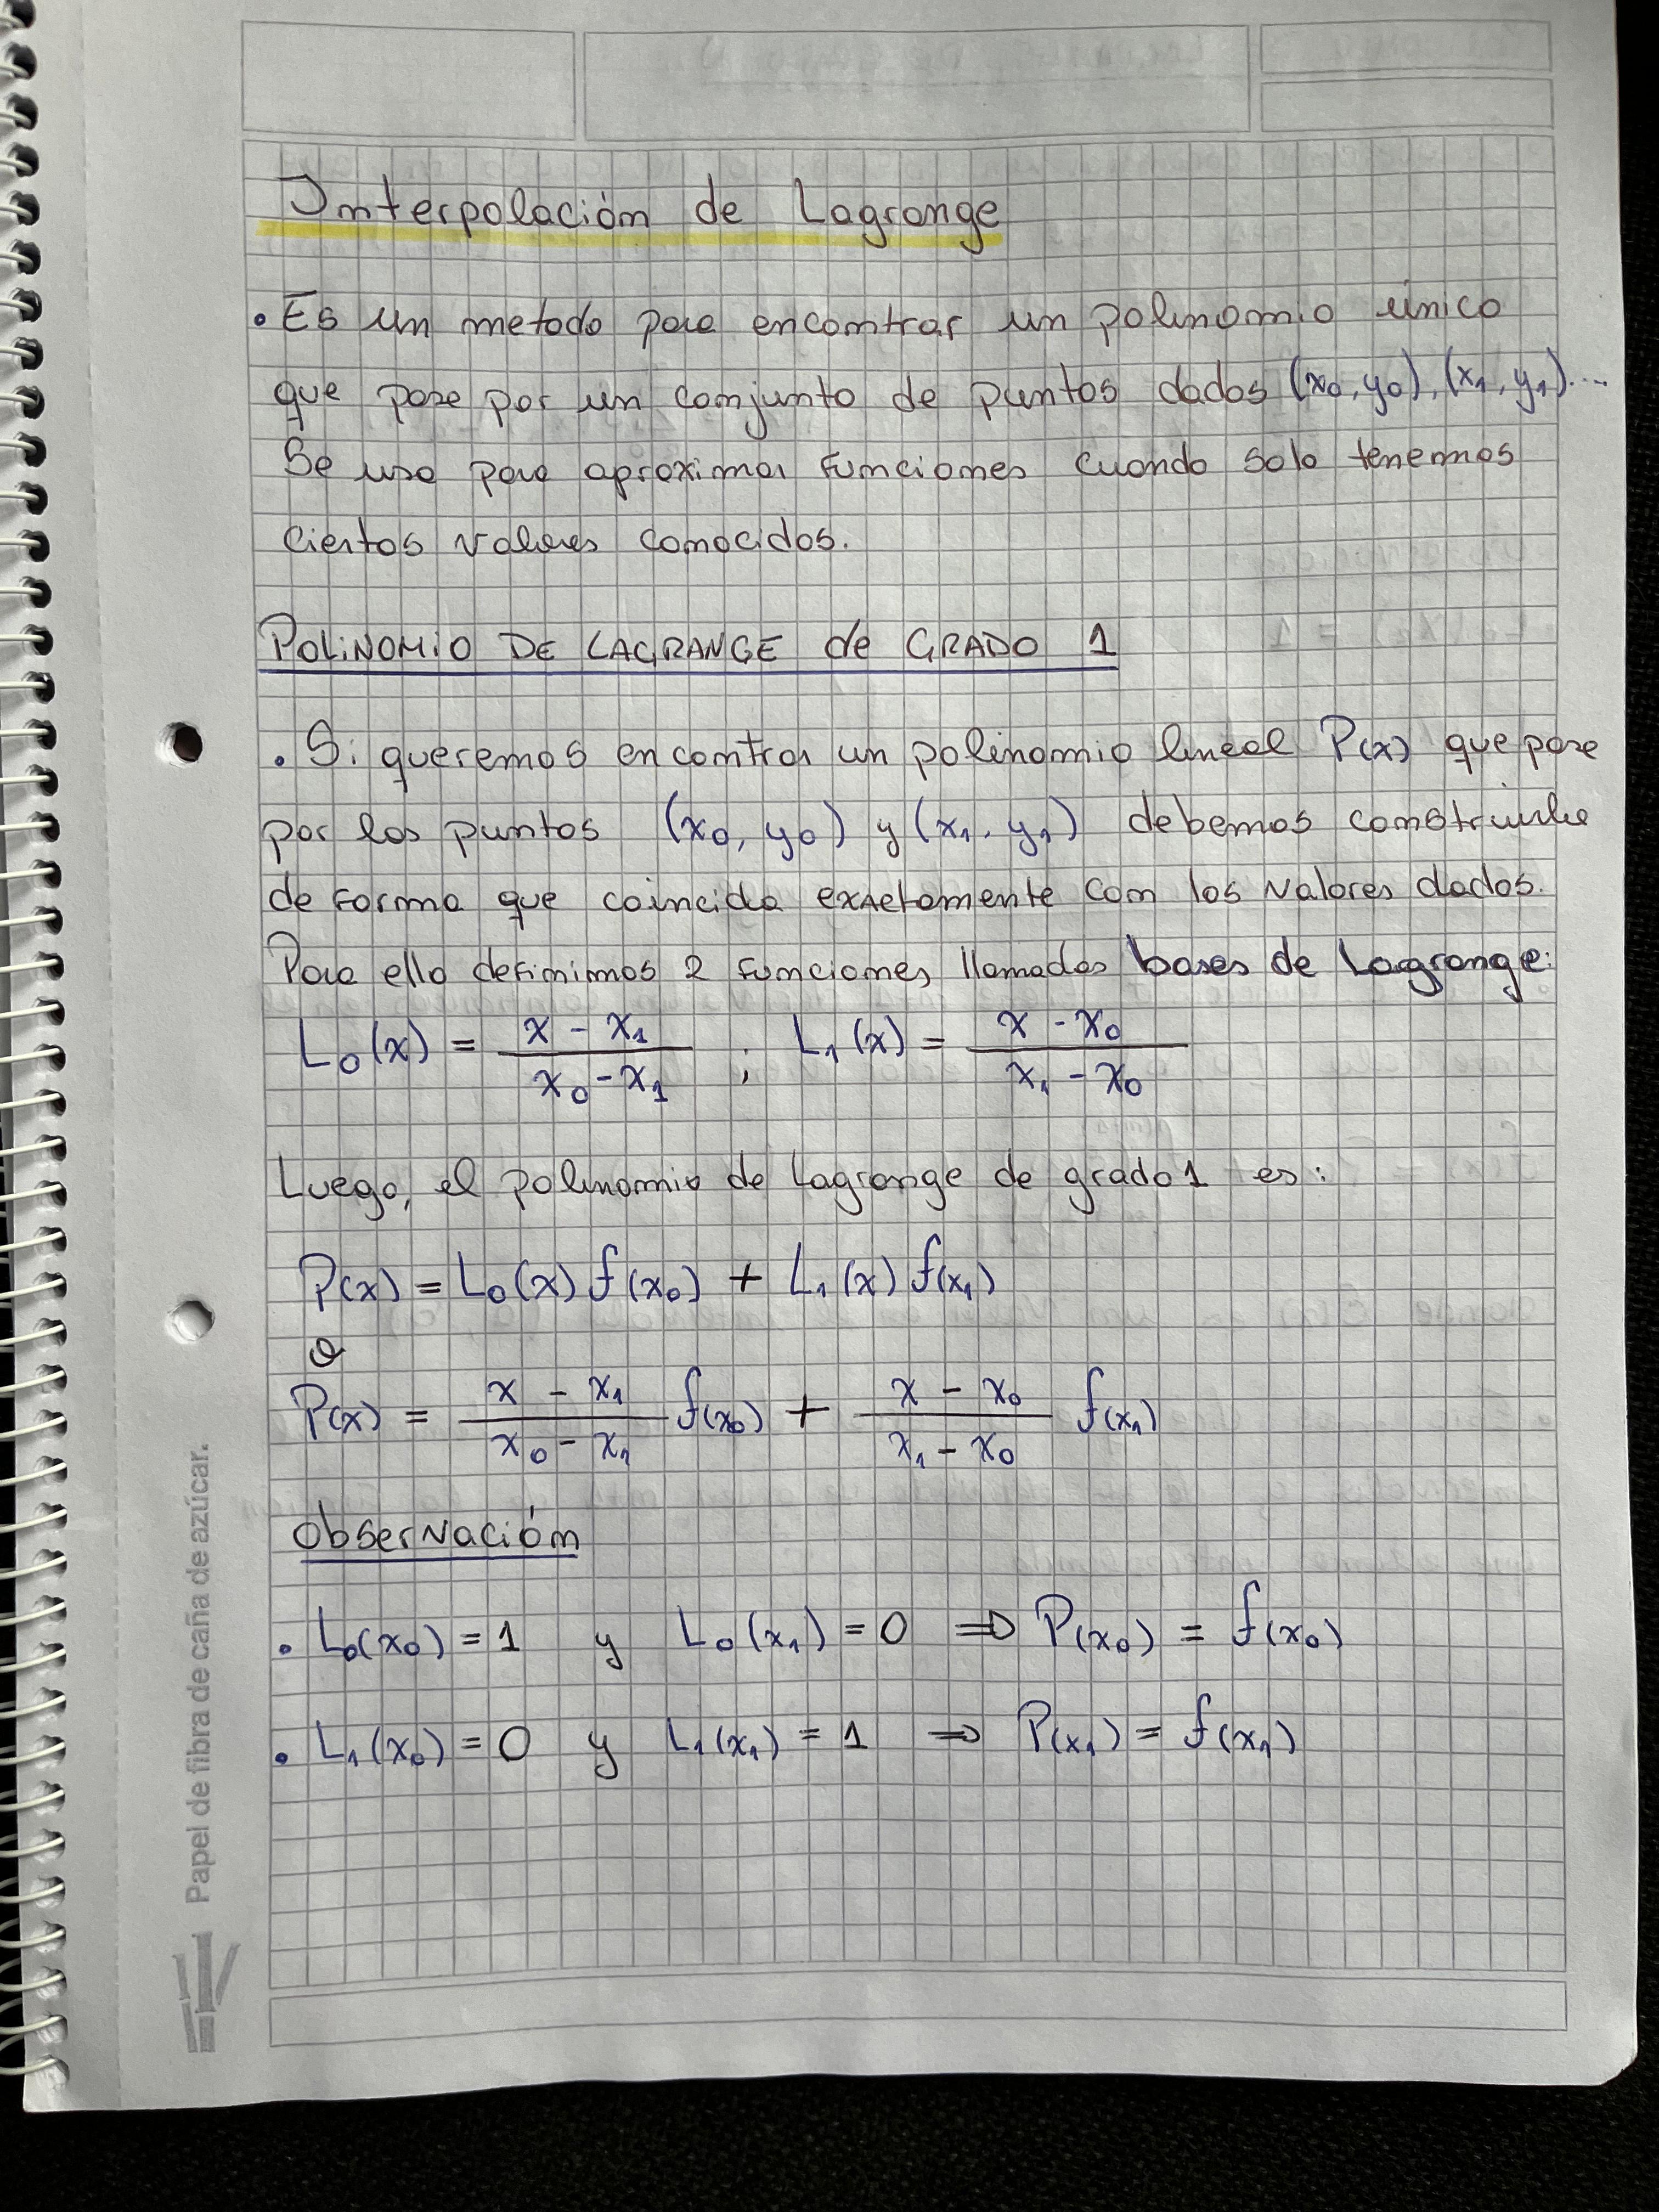 Interpolación de Lagrange
• Es un metodo para encontrar un polinomio único
que pase por un conjunto de puntos dados (x₀, y₀), (x₁, y₁)...
Se usa para aproximar funciones cuando solo tenemos
ciertos valores conocidos.
POLINOMIO DE LAGRANGE de GRADO 1
• Si queremos encontrar un polinomio lineal P(x) que pase
por los puntos (x₀, y₀) y (x₁, y₁) debemos construirlo
de forma que coincida exactamente con los valores dados.
Para ello definimos 2 funciones llamadas bases de Lagrange:
L₀(x) = (x - x₁)/(x₀ - x₁) ; L₁(x) = (x - x₀)/(x₁ - x₀)
Luego, el polinomio de Lagrange de grado 1 es:
P(x) = L₀(x) f(x₀) + L₁(x) f(x₁)
o
P(x) = (x - x₁)/(x₀ - x₁) f(x₀) + (x - x₀)/(x₁ - x₀) f(x₁)
Observación
• L₀(x₀) = 1 y L₀(x₁) = 0 ⇒ P(x₀) = f(x₀)
• L₁(x₀) = 0 y L₁(x₁) = 1 ⇒ P(x₁) = f(x₁)
Papel de fibra de caña de azúcar.